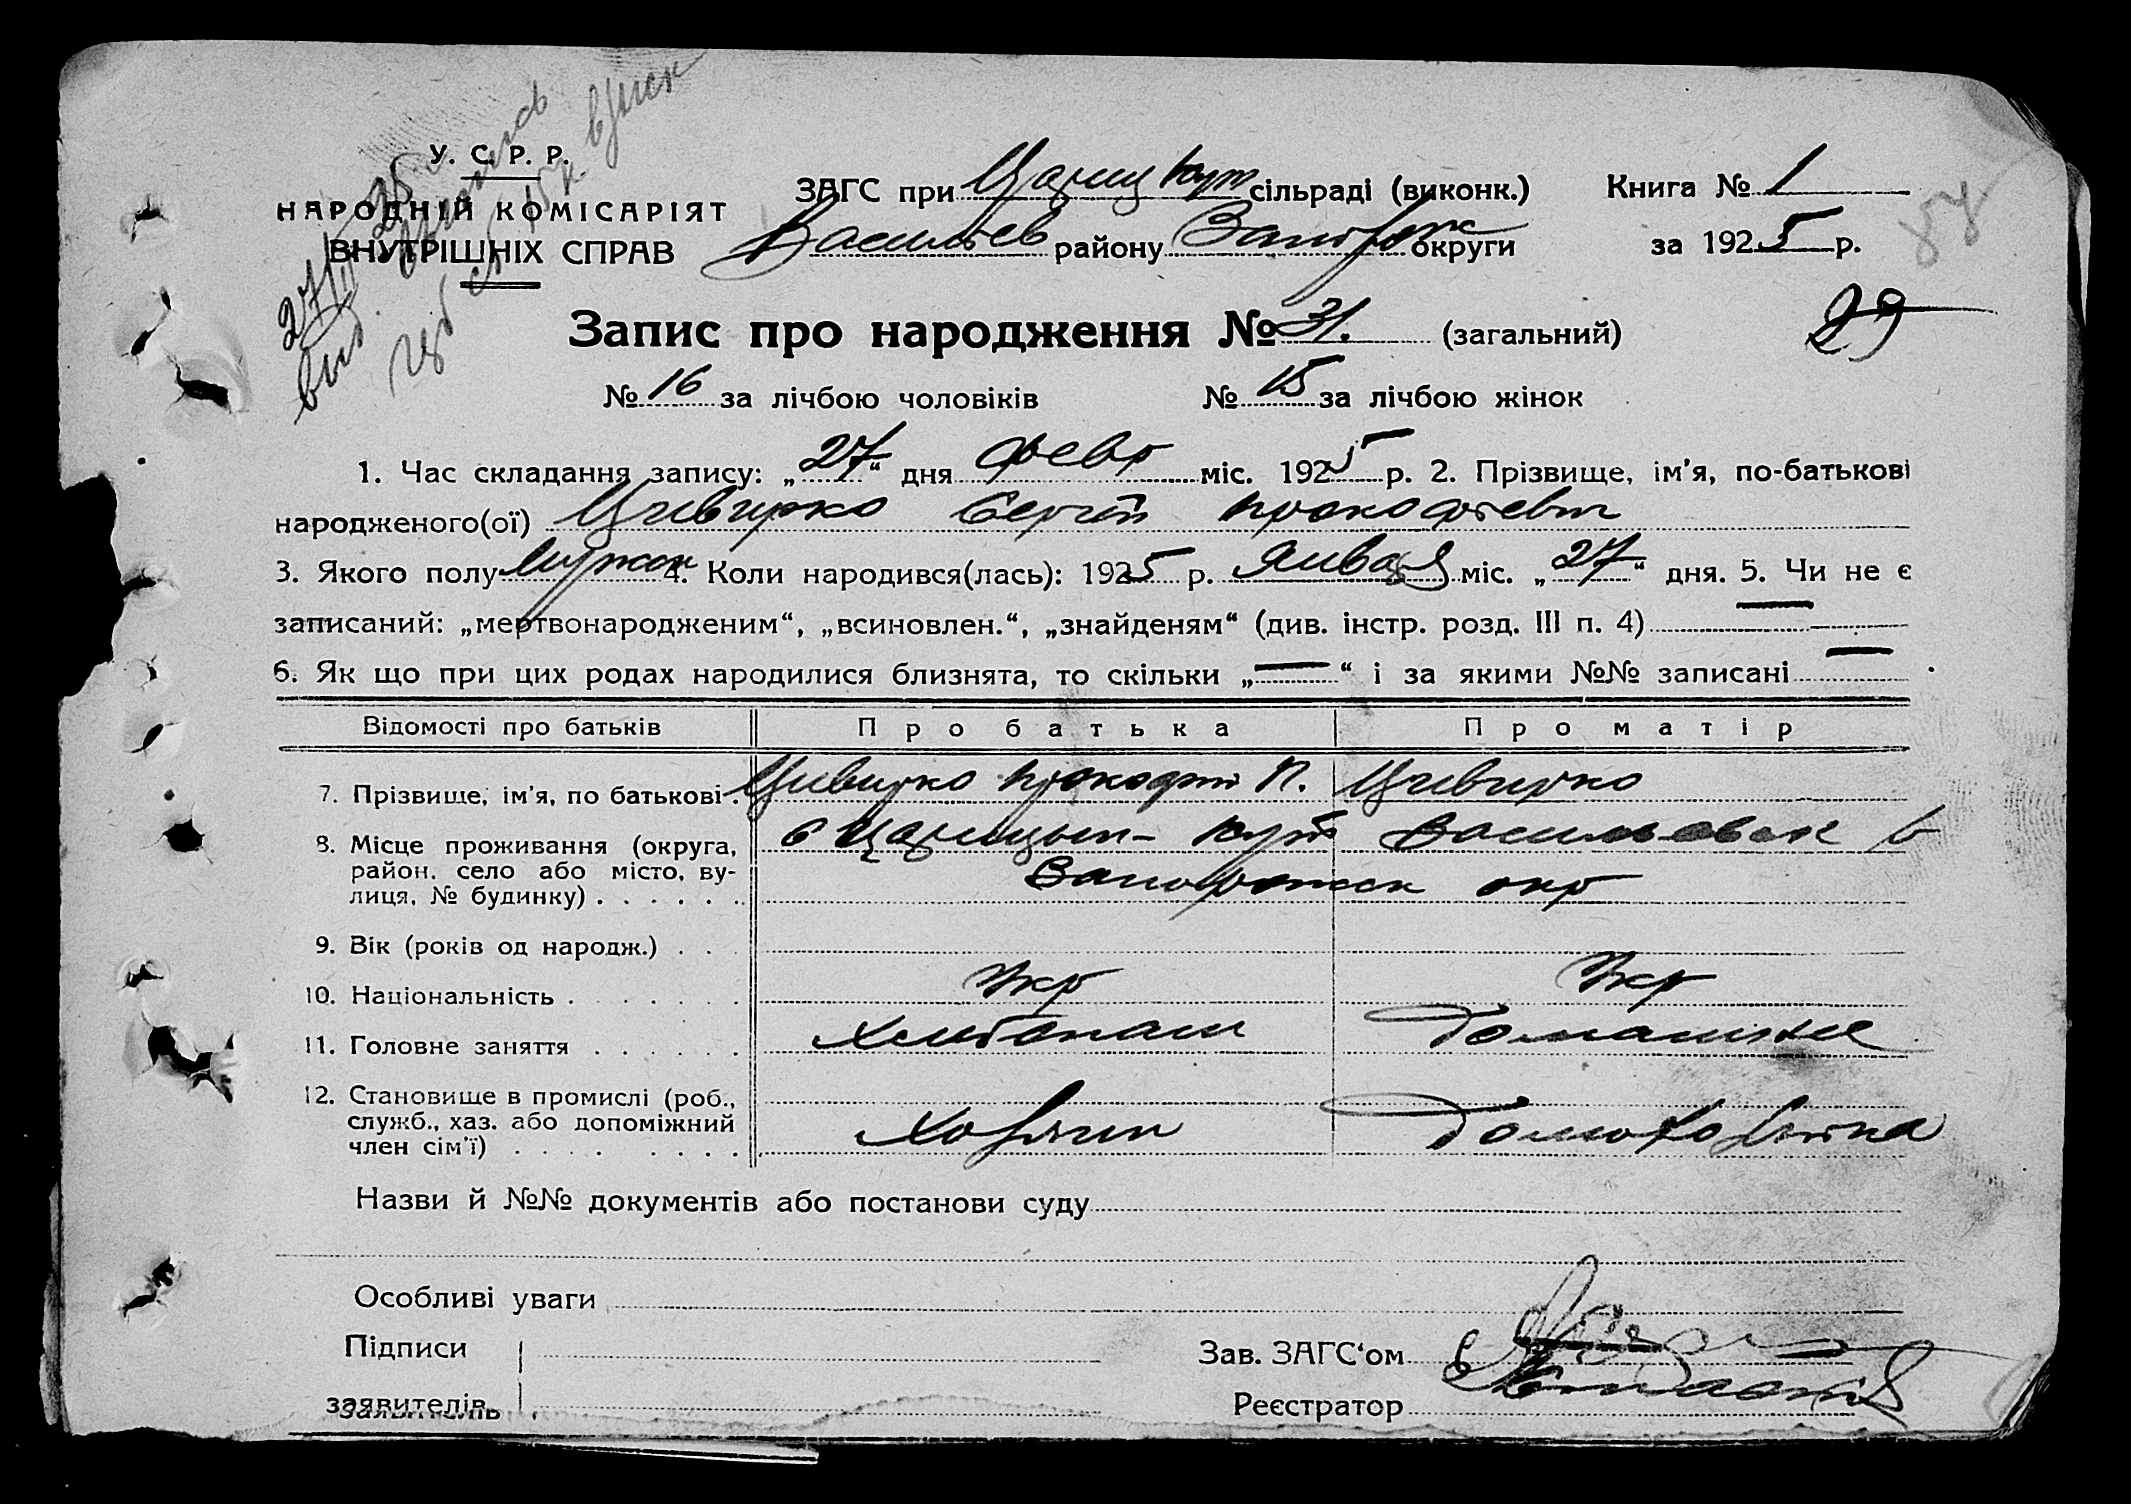 У. С. Р. Р.
НАРОДНІЙ КОМІСАРІЯТ
ВНУТРІШНІХ СПРАВ
ЗАГС при Цариц Кут сільраді (виконк.)
Васильев району Запорож округи
Книга № 1
за 1925 р.
Запис про народження № 31. (загальний)
29
№ 16 за лічбою чоловіків № 15 за лічбою жінок
1. Час складання запису: „27“ дня февр міс. 1925 р. 2. Прізвище, ім'я, по-батькові
народженого(ої) Цивирко Сергій Прокофтевич
3. Якого полу мужск 4. Коли народився(лась): 1925 р. Января міс. „27“ дня. 5. Чи не є
записаний: „мертвонародженим“, „всиновлен.“, „знайденям“ (див. інстр. розд. III п. 4) —
6. Як що при цих родах народилися близнята, то скільки „—“ і за якими №№ записані —
Відомості про батьків Про батька Про матір
7. Прізвище, ім'я, по батькові . Цивирко Прокофти П. Цивирко
8. Місце проживання (округа, с Царицын- Кут Васильевск
район. село або місто, ву- Запорожск окр
лиця, № будинку) . . . . . .
9. Вік (років од народж.) . . .
10. Національність . . . . . . . Укр Укр
11. Головне заняття . . . . . . Хлебопаш Домашня
12. Становище в промислі (роб.,
служб., хаз. або допоміжний Хозяин Домохозяйка
член сім'ї) . . . . . . . .
Назви й №№ документів або постанови суду
Особливі уваги
Підписи
заявителів
Зав. ЗАГС'ом
Реєстратор